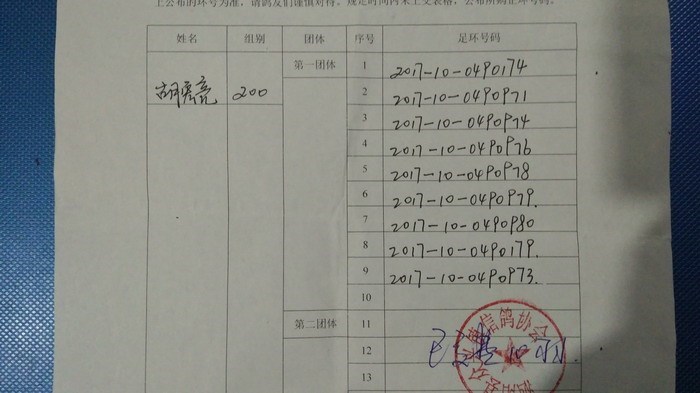 上公布的环号为准，请鸽友们谨慎对待。规定时间内未上交表格，公布所购证环号码。
姓名 组别 团体 序号 足环号码
胡宪亮 200 第一团体 1 2017-10-0490174
2 2017-10-0490971
3 2017-10-0490974
4 2017-10-0490976
5 2017-10-0490978
6 2017-10-0490979.
7 2017-10-0490980
8 2017-10-0490179.
9 2017-10-0490973.
10
第二团体 11
12
13
信鸽协会